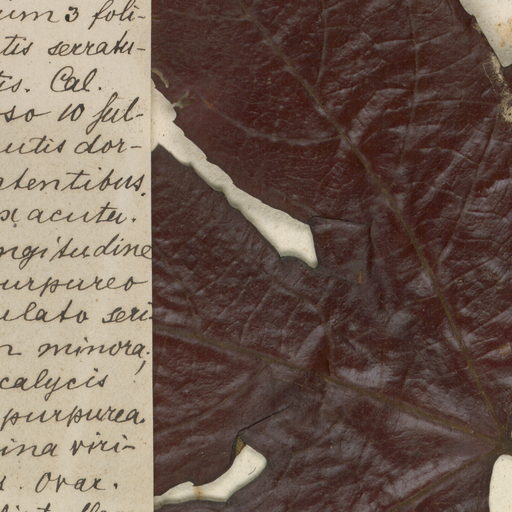 ium 3 foli-
tis serratu-
tis. Cal.
so 10 ful-
utis dor-
atentibus.
x acuta.
ngitudine
urpureo
ulato seri
n minora,
calycis
purpurea.
ina viri-
Ovar.